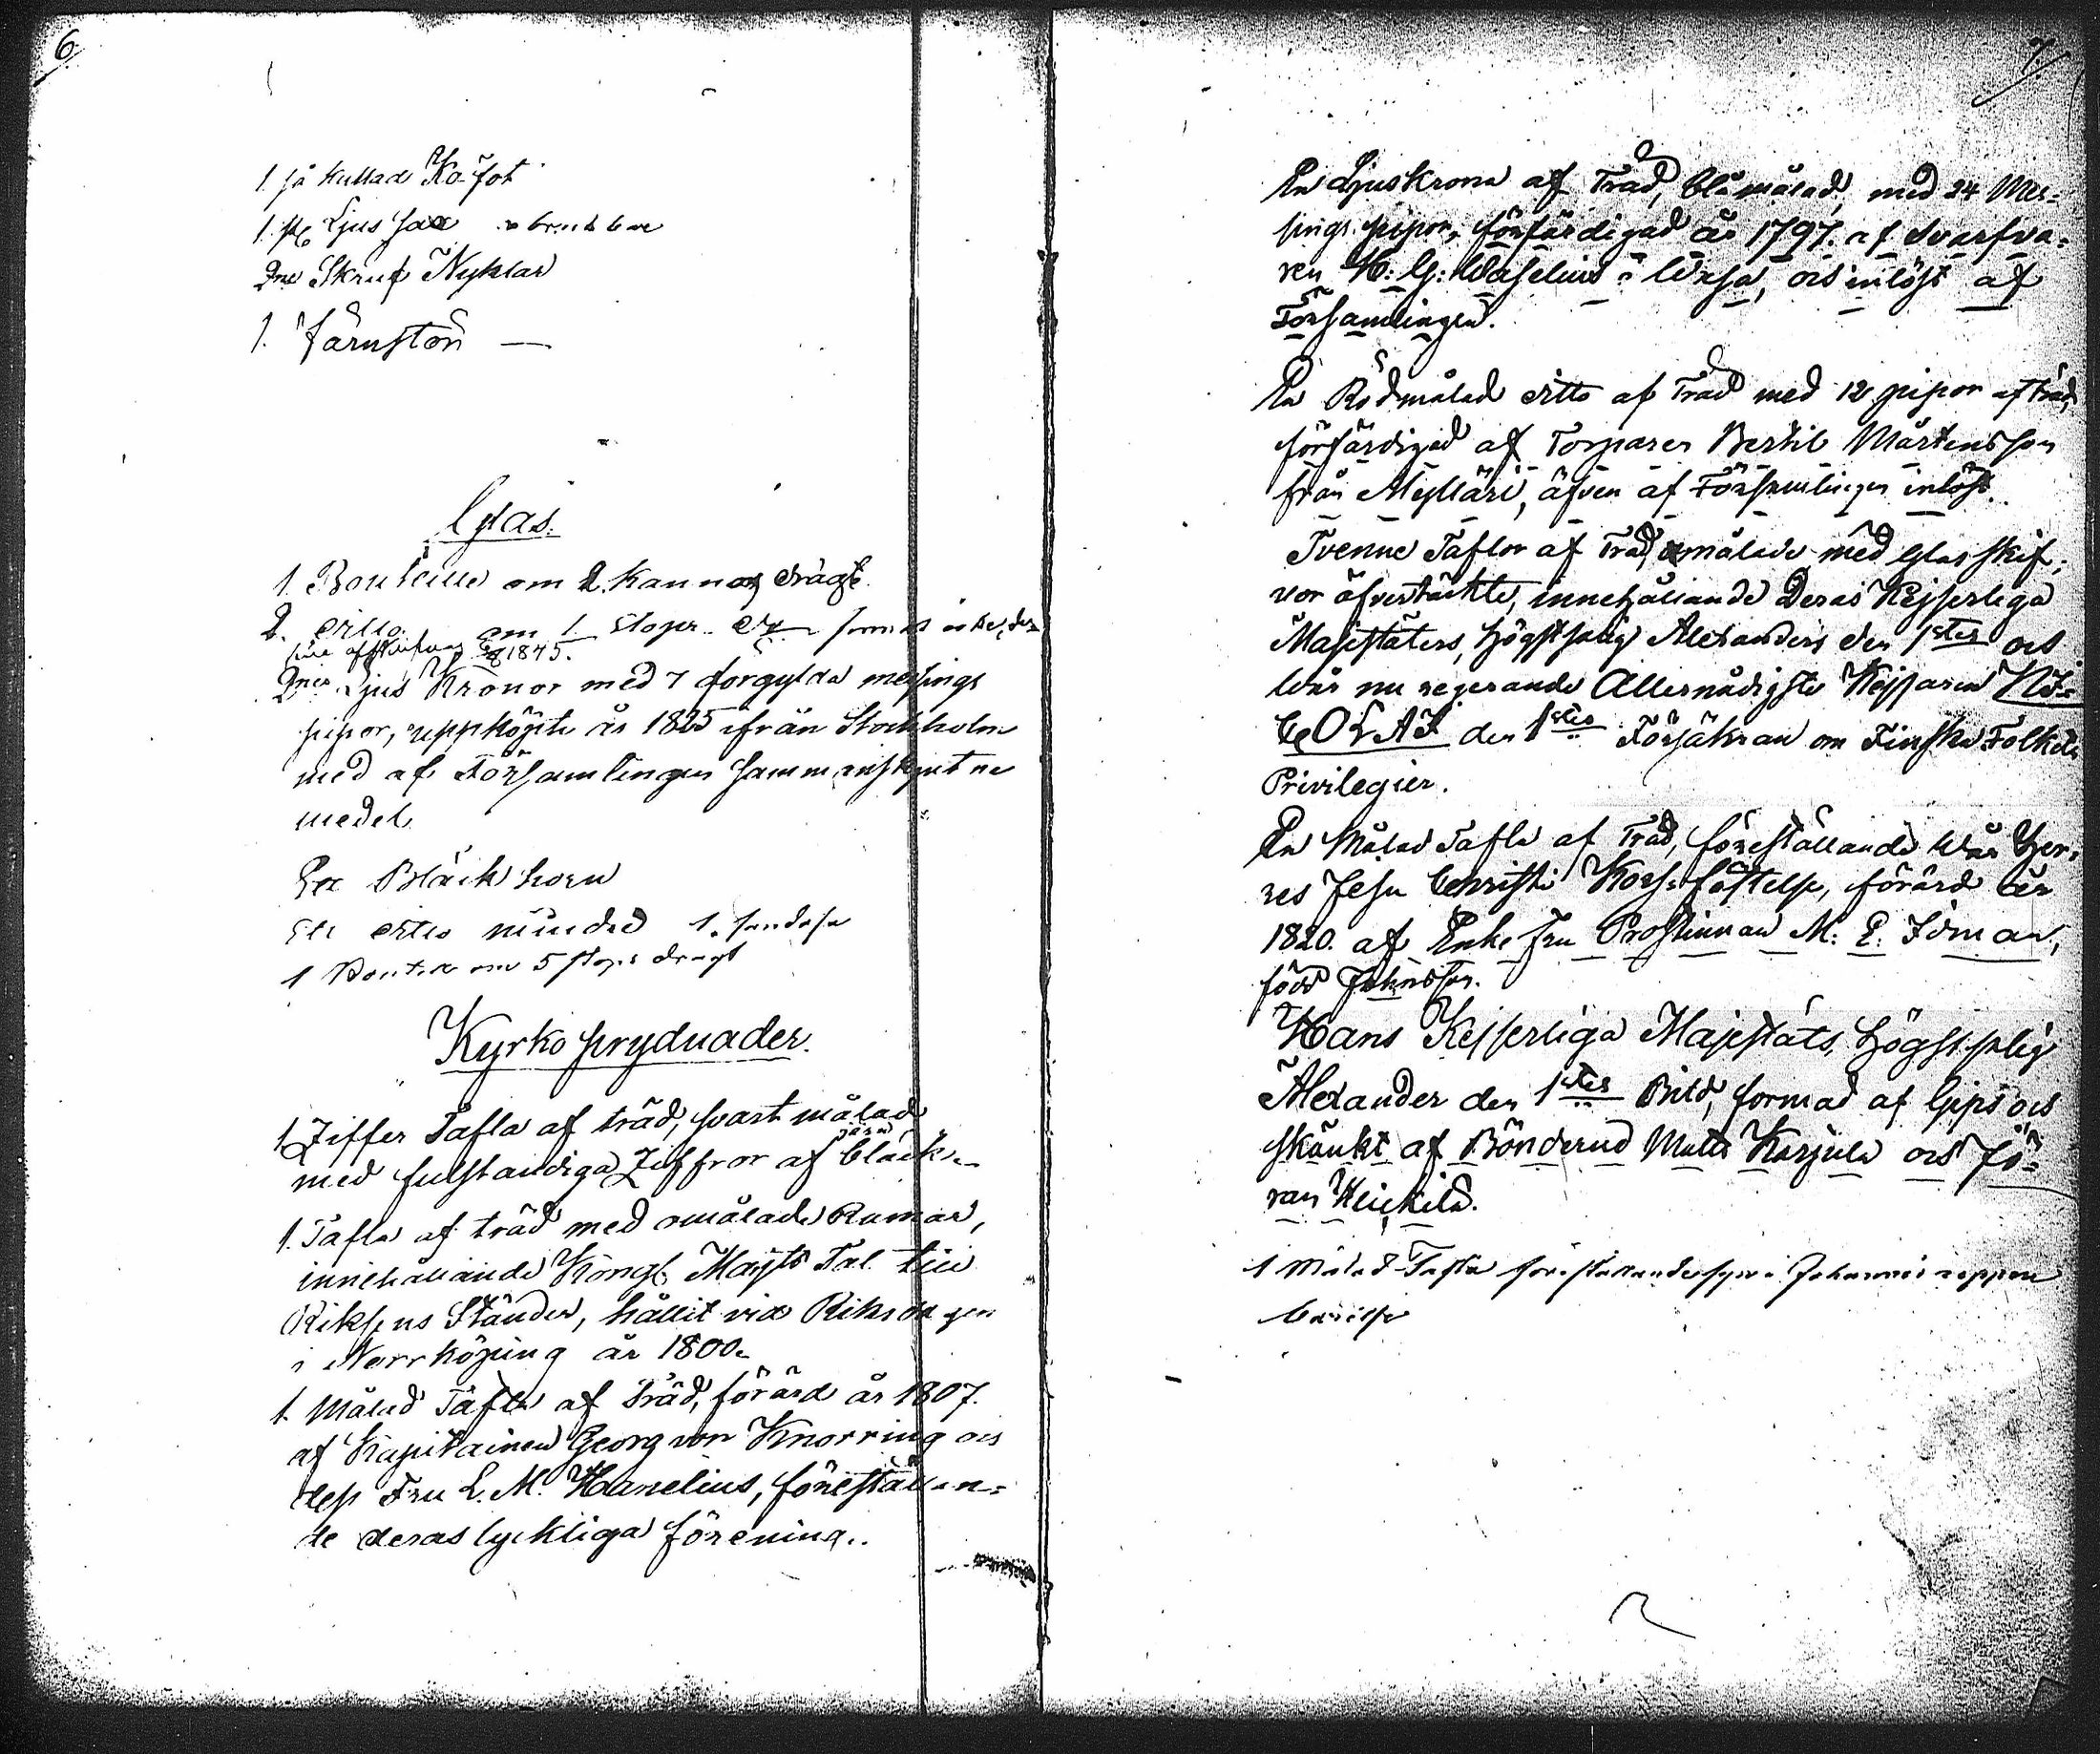 6.
1. så kallad Kofot
1. st. Ljus sax obrukbar
2ne Skruf Nyklar
1. Järnstör —
Glas.
1. Bouteille om 2. Kannors drägt.
2. ditto om 1 Stops
1845.
2ne Ljus Kronor med 7 förgylda messings
pipor, uppköpte år 1825 ifrån Stockholm
med af Församlingen sammanskjutne
medel
Ett Bläck horn
Ett ditto mindre 1. sanddosa
1 Boutx om 5 stops drägt
Kyrko prydnader.
1 Ziffer Tafla af träd, svart målad
med fulständiga Ziffror af bläck järn
1. Tafla af träd med omålade Ramar,
innehållande Kongl. Majts Tal till
Riksens Ständer, hållit vid Riksdagen
i Norrköping år 1800.
1. Målad Tafla af Träd, förärd år 1807.
af Kapitainen Georg von Knorring och
dess Fru L. M. Hanelius, föreställan-
de deras lyckliga förening.
7.
En Ljuskrona af Träd, blåmålad, med 24 Mes-
sings pipor, förfärdigad år 1797. af Svarfva-
ren H: G: Waselius i Wasa, och inlöst af
Församlingen.
En Rödmålad ditto af Träd med 12 pipor af träd,
förfärdigad af Torparen Bertil Mårtensson
från Mylläri, äfven af Församlingen inlöst.
Tvenne Taflor af Träd, omålade med Glas skif-
vor öfvertäckte, innehållande Deras Kejserliga
Majestäters, Högstsalig Alexanders den 1stes och
Wår nu regerande Allernådigste Kejsaren NI-
COLAI den 1stes Försäkran om Finska Folkets
Privilegier.
En Målad Tafla af Träd, föreställande Wår Her-
res Jesu Christi Kors-fästelse, förärd år
1820. af Enke Fru Prostinnan M: E: Idman,
född Johnsson.
Hans Kejserliga Majestäts, Högstsalig
Alexander den 1stes Bild, formad af Gips och
skänkt af Bönderne Matts Karjula och Jö-
ran Heickilä.
1 Målad Tafla föreställande Johannis uppen
barelse